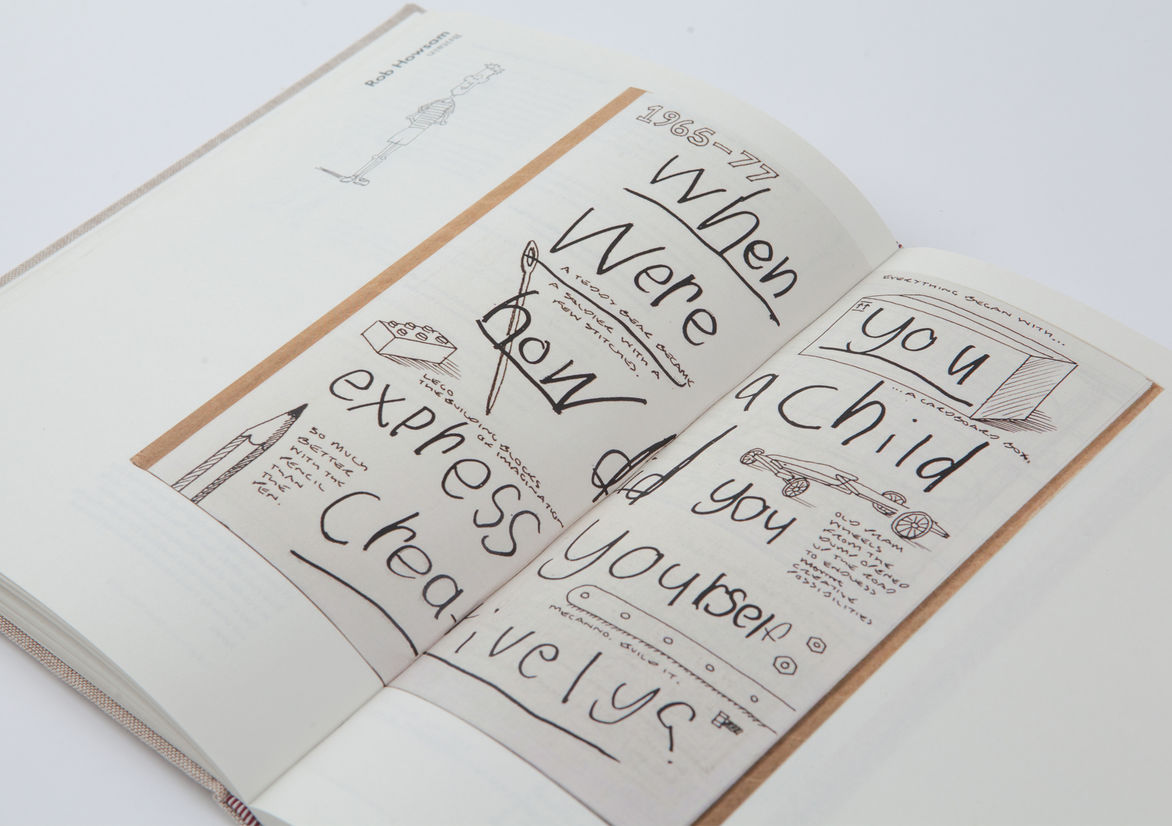 Rob Howsam
1965-77
When you
Were a Child
how did you
express yourself
Creatively?
A TEDDY BEAR BECAME
A SOLDIER WITH A
FEW STITCHES.
LEGO
THE BUILDING BLOCKS
OF IMAGINATION
SO MUCH
BETTER
WITH THE
PENCIL
THAN
THE
PEN.
EVERYTHING BEGAN WITH...
...A CARDBOARD BOX.
OLD PRAM
WHEELS
FROM THE
DUMP OPENED
UP THE ROAD
TO ENDLESS
CREATIVE
POSSIBILITIES
MECANNO. BUILD IT.